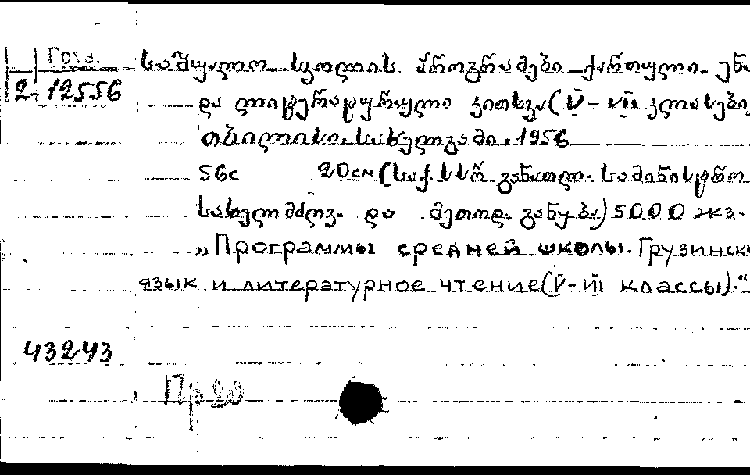 Груз.
2-12556
საშუალო სკოლის პროგრამები ქართული ენა
და ლიტერატურული კითხვა (V-VII კლასები
თბილისი. სახელგამი. 1956
56с 20см (საქ. სსრ განათლ. სამინისტრო
სახელმძღვ. და მეთოდ. განყ-ბა) 5000 экз.
„Программы средней школы. Грузинск
язык и литературное чтение (V-VII классы)."
43243
Пр 20